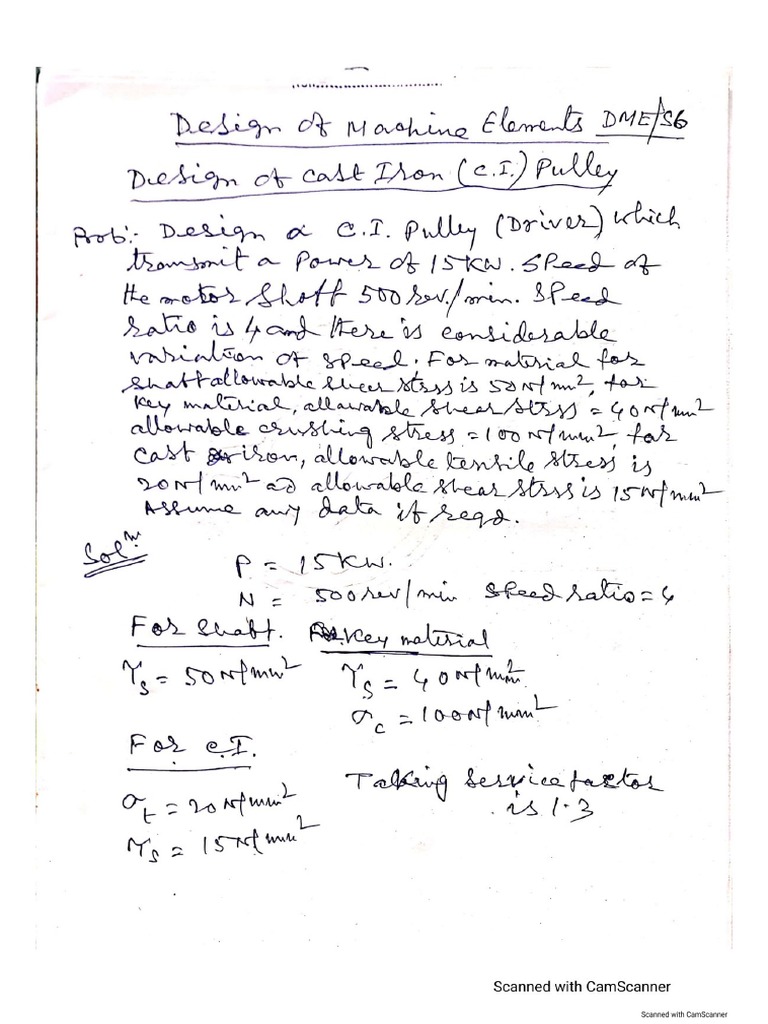 Design of Machine Elements DME/S6
Design of Cast Iron (C.I.) Pulley
Prob:- Design a C.I. Pulley (Driver) which
transmit a Power of 15KW. Speed of
the motor Shaft 500 rev./min. Speed
ratio is 4 and there is considerable
variation of speed. For material for
shaft allowable shear stress is 50N/mm², for
key material, allowable shear stress = 40N/mm²
allowable crushing stress = 100N/mm² for
cast iron, allowable tensile stress is
20N/mm² ad allowable shear stress is 15N/mm²
Assume any data if reqd.
Solⁿ
P = 15KW.
N = 500 rev/min Speed ratio = 4
For Shaft. Key material
τs = 50N/mm² τs = 40N/mm²
σc = 100N/mm²
For C.I.
σt = 20N/mm² Taking service factor
is 1.3
τs = 15N/mm²
Scanned with CamScanner
Scanned with CamScanner